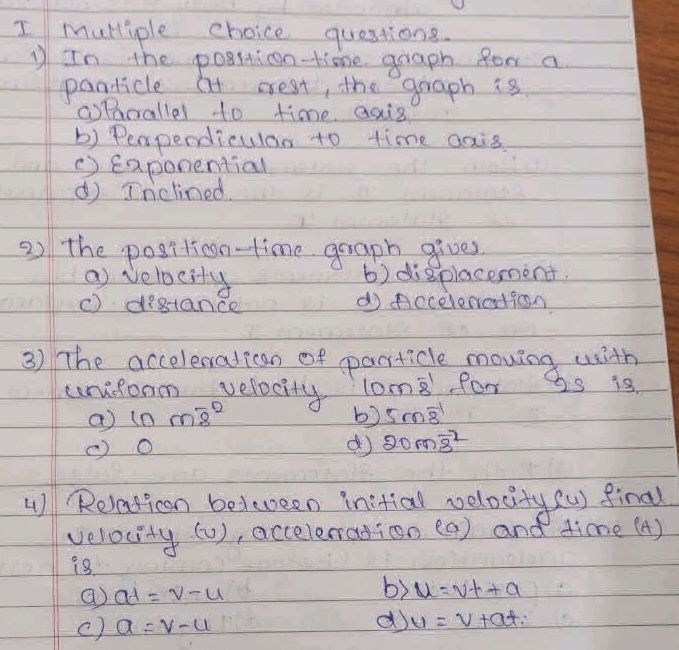 I Multiple choice questions.
1) In the position-time graph for a
particle at rest, the graph is
a) Parallel to time axis
b) Perpendicular to time axis
c) Exponential
d) Inclined.
2) The position-time graph gives
a) velocity b) displacement.
c) distance d) Acceleration
3) The acceleration of particle moving with
uniform velocity 10ms⁻¹ for 2s is
a) 10 ms⁻² b) 5ms⁻¹
c) 0 d) 20ms⁻²
4) Relation between initial velocity (u) final
velocity (v), acceleration (a) and time (t)
is
a) at = v-u b) u = vt + a
c) a = v-u d) u = v+at.